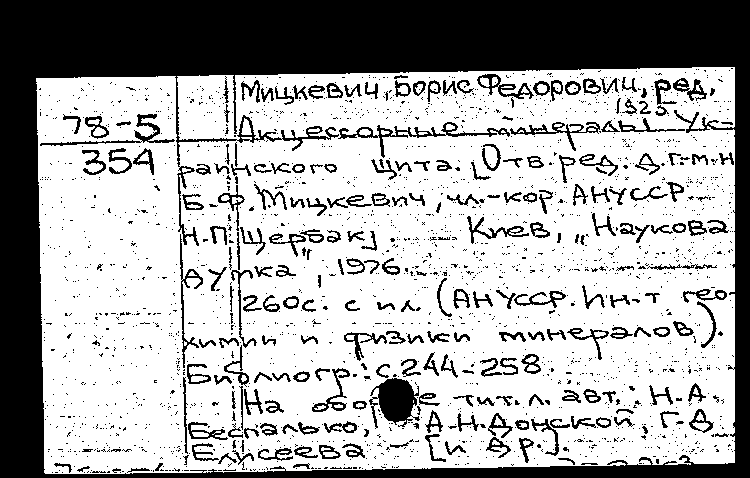 Мицкевич, Борис Федорович, ред.
1925
78-5
Акцессорные минералы Ук-
354
раинского щита. [Отв. ред. д.г.-м.н
Б.Ф. Мицкевич, чл.-кор. АНУССР
Н.П. Щербак]. Киев, „Наукова
думка", 1976.
260с. с ил. (АНУССР. Ин-т гео-
химии и физики минералов).
Библиогр.: с. 244-258.
На обо е тит. л. авт.: Н.А.
Беспалько, А.Н. Донской, Г.Д
Елисеева — [и др.].